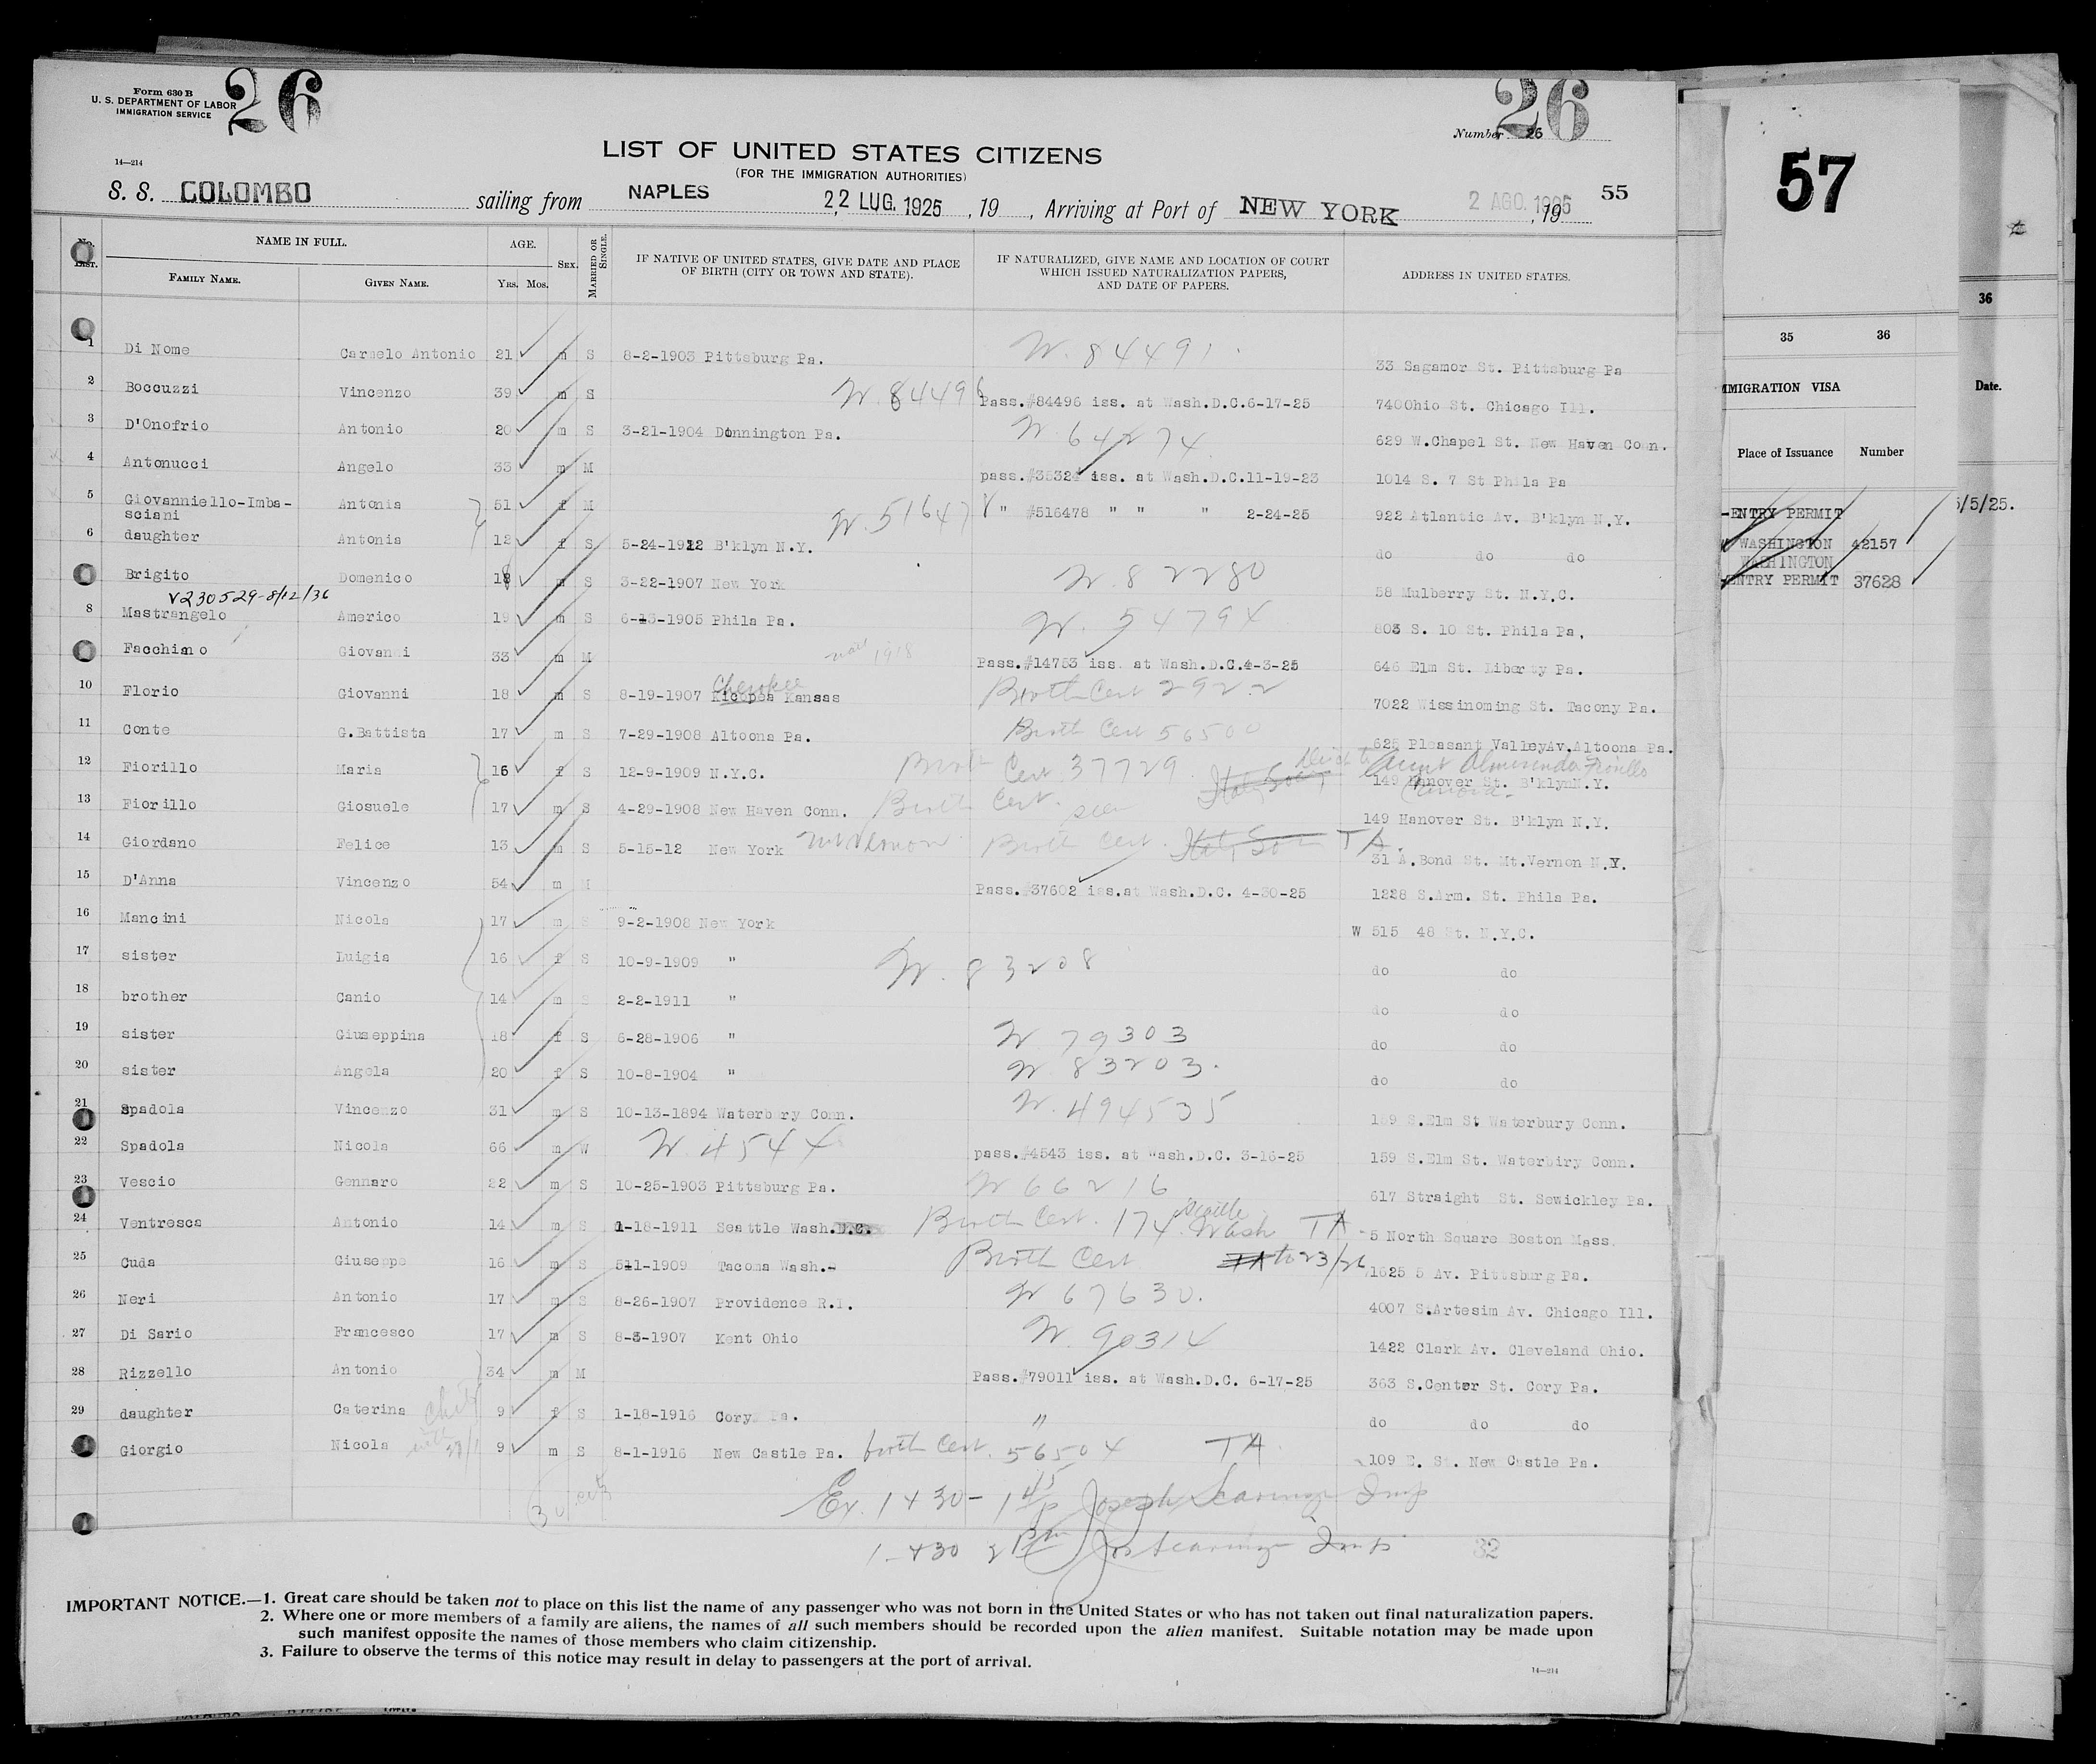 Form 630 B
U. S. DEPARTMENT OF LABOR
IMMIGRATION SERVICE
26
26
Number 26
14—214
LIST OF UNITED STATES CITIZENS
(FOR THE IMMIGRATION AUTHORITIES)
S. S. COLOMBO sailing from NAPLES 22 LUG. 1925, 19 , Arriving at Port of NEW YORK 2 AGO. 1925, 19 55
No. LIST. NAME IN FULL. AGE. SEX. MARRIED OR SINGLE. IF NATIVE OF UNITED STATES, GIVE DATE AND PLACE OF BIRTH (CITY OR TOWN AND STATE). IF NATURALIZED, GIVE NAME AND LOCATION OF COURT WHICH ISSUED NATURALIZATION PAPERS, AND DATE OF PAPERS. ADDRESS IN UNITED STATES.
FAMILY NAME. GIVEN NAME. YRS. MOS.
1 Di Nome Carmelo Antonio 21 m S 8-2-1903 Pittsburg Pa. W. 84491. 33 Sagamor St. Pittsburg Pa
2 Boccuzzi Vincenzo 39 m S W. 84496 Pass.#84496 iss. at Wash.D.C.6-17-25 740Ohio St. Chicago Ill.
3 D'Onofrio Antonio 20 m S 3-21-1904 Donnington Pa. W. 64274 629 W.Chapel St. New Haven Conn.
4 Antonucci Angelo 33 m M pass.#35324 iss. at Wash.D.C.11-19-23 1014 S. 7 St Phila Pa
5 Giovanniello-Imba-
sciani Antonia 51 f M W. 516478 " #516478 " " " 2-24-25 922 Atlantic Av. B'klyn N.Y.
6 daughter Antonia 12 f S 5-24-1912 B'klyn N.Y. do do do
Brigito Domenico 18 m S 3-22-1907 New York W. 82280 58 Mulberry St. N.Y.C.
V230529-8/12/36
8 Mastrangelo Americo 19 m S 6-13-1905 Phila Pa. W. 54794 803 S. 10 St. Phila Pa,
Facchino Giovanni 33 m M 1918 Pass.#14753 iss. at Wash.D.C.4-3-25 646 Elm St. Liberty Pa.
Cherokee
10 Florio Giovanni 18 m S 8-19-1907 Kicopoa Kansas Birth Cert 2922 7022 Wissinoming St. Tacony Pa.
11 Conte G.Battista 17 m S 7-29-1908 Altoona Pa. Birth Cert 56500 625 Pleasant ValleyAv,Altoona Pa.
12 Fiorillo Maria 16 f S 12-9-1909 N.Y.C. Birth Cert. 37729 Aunt Fiorillo
149 Hanover St. B'klynN.Y.
13 Fiorillo Giosuele 17 m S 4-29-1908 New Haven Conn. Birth Cert. seen 149 Hanover St. B'klyn N.Y.
14 Giordano Felice 13 m S 5-15-12 New York Mt Vernon Birth Cert. TA. 31 A.Bond St. Mt.Vernon N.Y.
15 D'Anna Vincenzo 54 m M Pass.#37602 iss.at Wash.D.C. 4-30-25 1228 S.Arm. St. Phila Pa.
16 Mancini Nicola 17 m S 9-2-1908 New York W 515 48 St. N.Y.C.
17 sister Luigia 16 f S 10-9-1909 " W. 83208 do do
18 brother Canio 14 m S 2-2-1911 " do do
19 sister Giuseppina 18 f S 6-28-1906 " W. 79303 do do
20 sister Angela 20 f S 10-8-1904 " W. 83203. do do
21 Spadola Vincenzo 31 m S 10-13-1894 Waterbury Conn. W. 494535 159 S.Elm St Waterbury Conn.
22 Spadola Nicola 66 m W W. 4544 pass.#4543 iss. at Wash.D.C. 3-16-25 159 S.Elm St. Waterbiry Conn.
23 Vescio Gennaro 22 m S 10-25-1903 Pittsburg Pa. W 66216 617 Straight St. Sewickley Pa.
24 Ventresca Antonio 14 m S 1-18-1911 Seattle Wash.D.C. Birth Cert. 174 Seattle Wash TA 5 North Square Boston Mass.
25 Cuda Giuseppe 16 m S 511-1909 Tacoma Wash.- Birth Cert TA to 23/26 1625 5 Av. Pittsburg Pa.
26 Neri Antonio 17 m S 8-26-1907 Providence R.I. W 67630. 4007 S.Artesim Av. Chicago Ill.
27 Di Sario Francesco 17 m S 8-3-1907 Kent Ohio W. 90314 1422 Clark Av. Cleveland Ohio.
28 Rizzello Antonio 34 m M Pass.#79011 iss. at Wash.D.C. 6-17-25 363 S.Center St. Cory Pa.
29 daughter Caterina 9 f S 1-18-1916 Cory Pa. " do do do
Giorgio Nicola 9 m S 8-1-1916 New Castle Pa. birth Cert. 56504 TA 109 E. St. New Castle Pa.
Ex. 1+30-1 45/p Joseph Insp
1-+30 2 Pm Jos Insp 32
IMPORTANT NOTICE.—1. Great care should be taken not to place on this list the name of any passenger who was not born in the United States or who has not taken out final naturalization papers.
2. Where one or more members of a family are aliens, the names of all such members should be recorded upon the alien manifest. Suitable notation may be made upon
such manifest opposite the names of those members who claim citizenship.
3. Failure to observe the terms of this notice may result in delay to passengers at the port of arrival.
14—214
57
35 36
MMIGRATION VISA
Place of Issuance Number
-ENTRY PERMIT
WASHINGTON 42157
WASHINGTON
ENTRY PERMIT 37628
36
Date.
5/5/25.